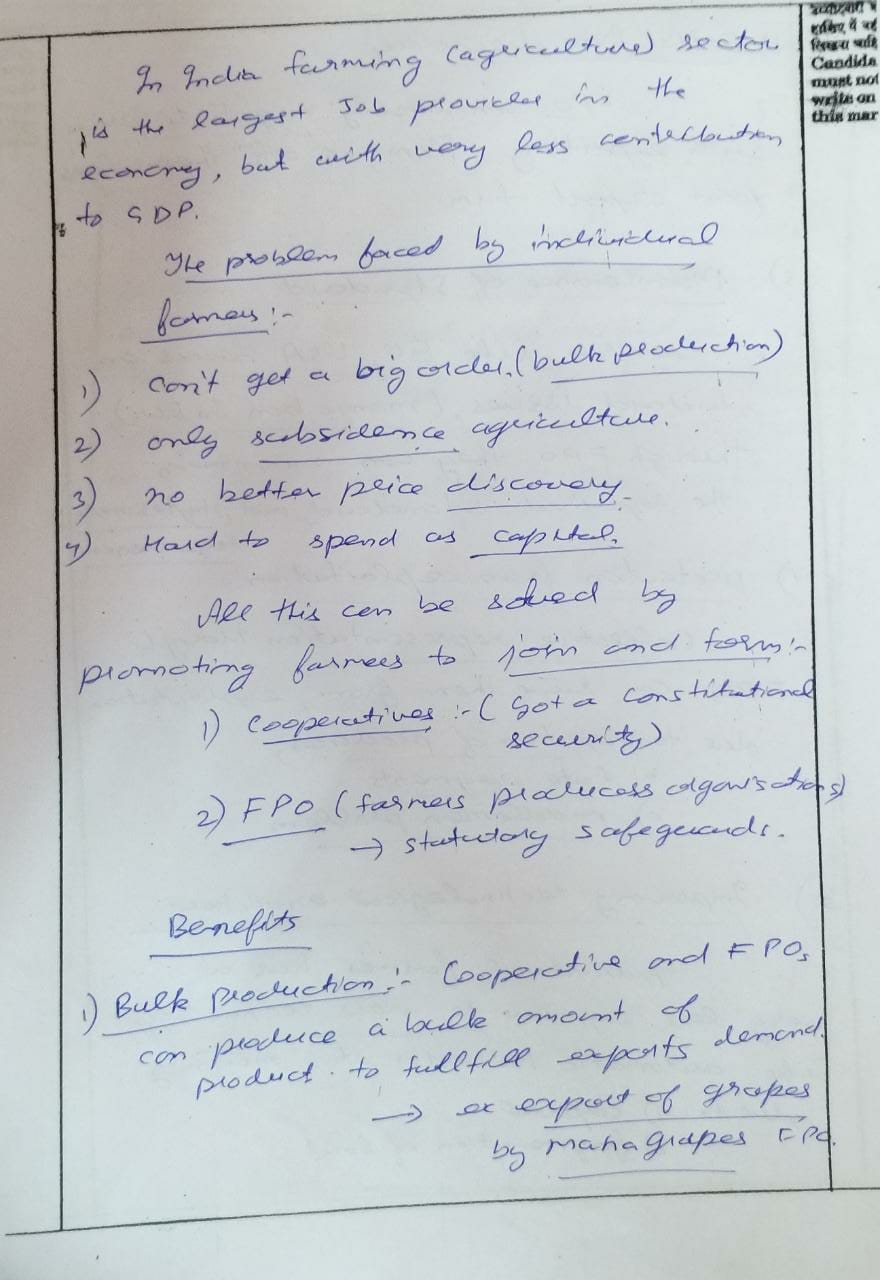 In India farming (agriculture) sector
is the largest Job provider in the
economy, but with very less contribution
to GDP.
The problem faced by individual
farmers :-
1) Can't get a big order. (bulk production)
2) only subsidence agriculture.
3) no better price discovery.
4) Hard to spend as capital.
All this can be solved by
promoting farmers to join and form :-
1) Cooperatives :- ( Got a constitutional
security)
2) FPO (farmers producess organisations)
→ statutory safeguards.
Benefits
1) Bulk production :- Cooperative and FPOs
can produce a bulk amount of
product. to fullfill exports demand.
→ ex export of grapes
by Mahagrapes FPO.
हाशिए में नहीं
लिखना चाहिए
Candida
must not
write on
this mar